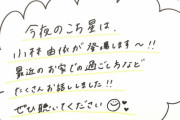 今夜のこち星は、
小林由依が登場します〜!!
最近のお家での過ごし方など
たくさんお話ししました!!
ぜひ聴いてください